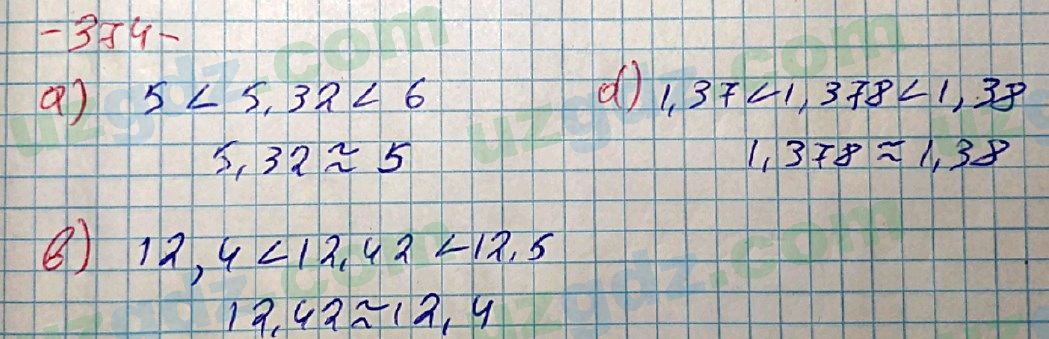 -374-
a) 5 < 5,32 < 6
5,32 ≈ 5
d) 1,37 < 1,378 < 1,38
1,378 ≈ 1,38
b) 12,4 < 12,42 < 12,5
12,42 ≈ 12,4
uzgdz.com